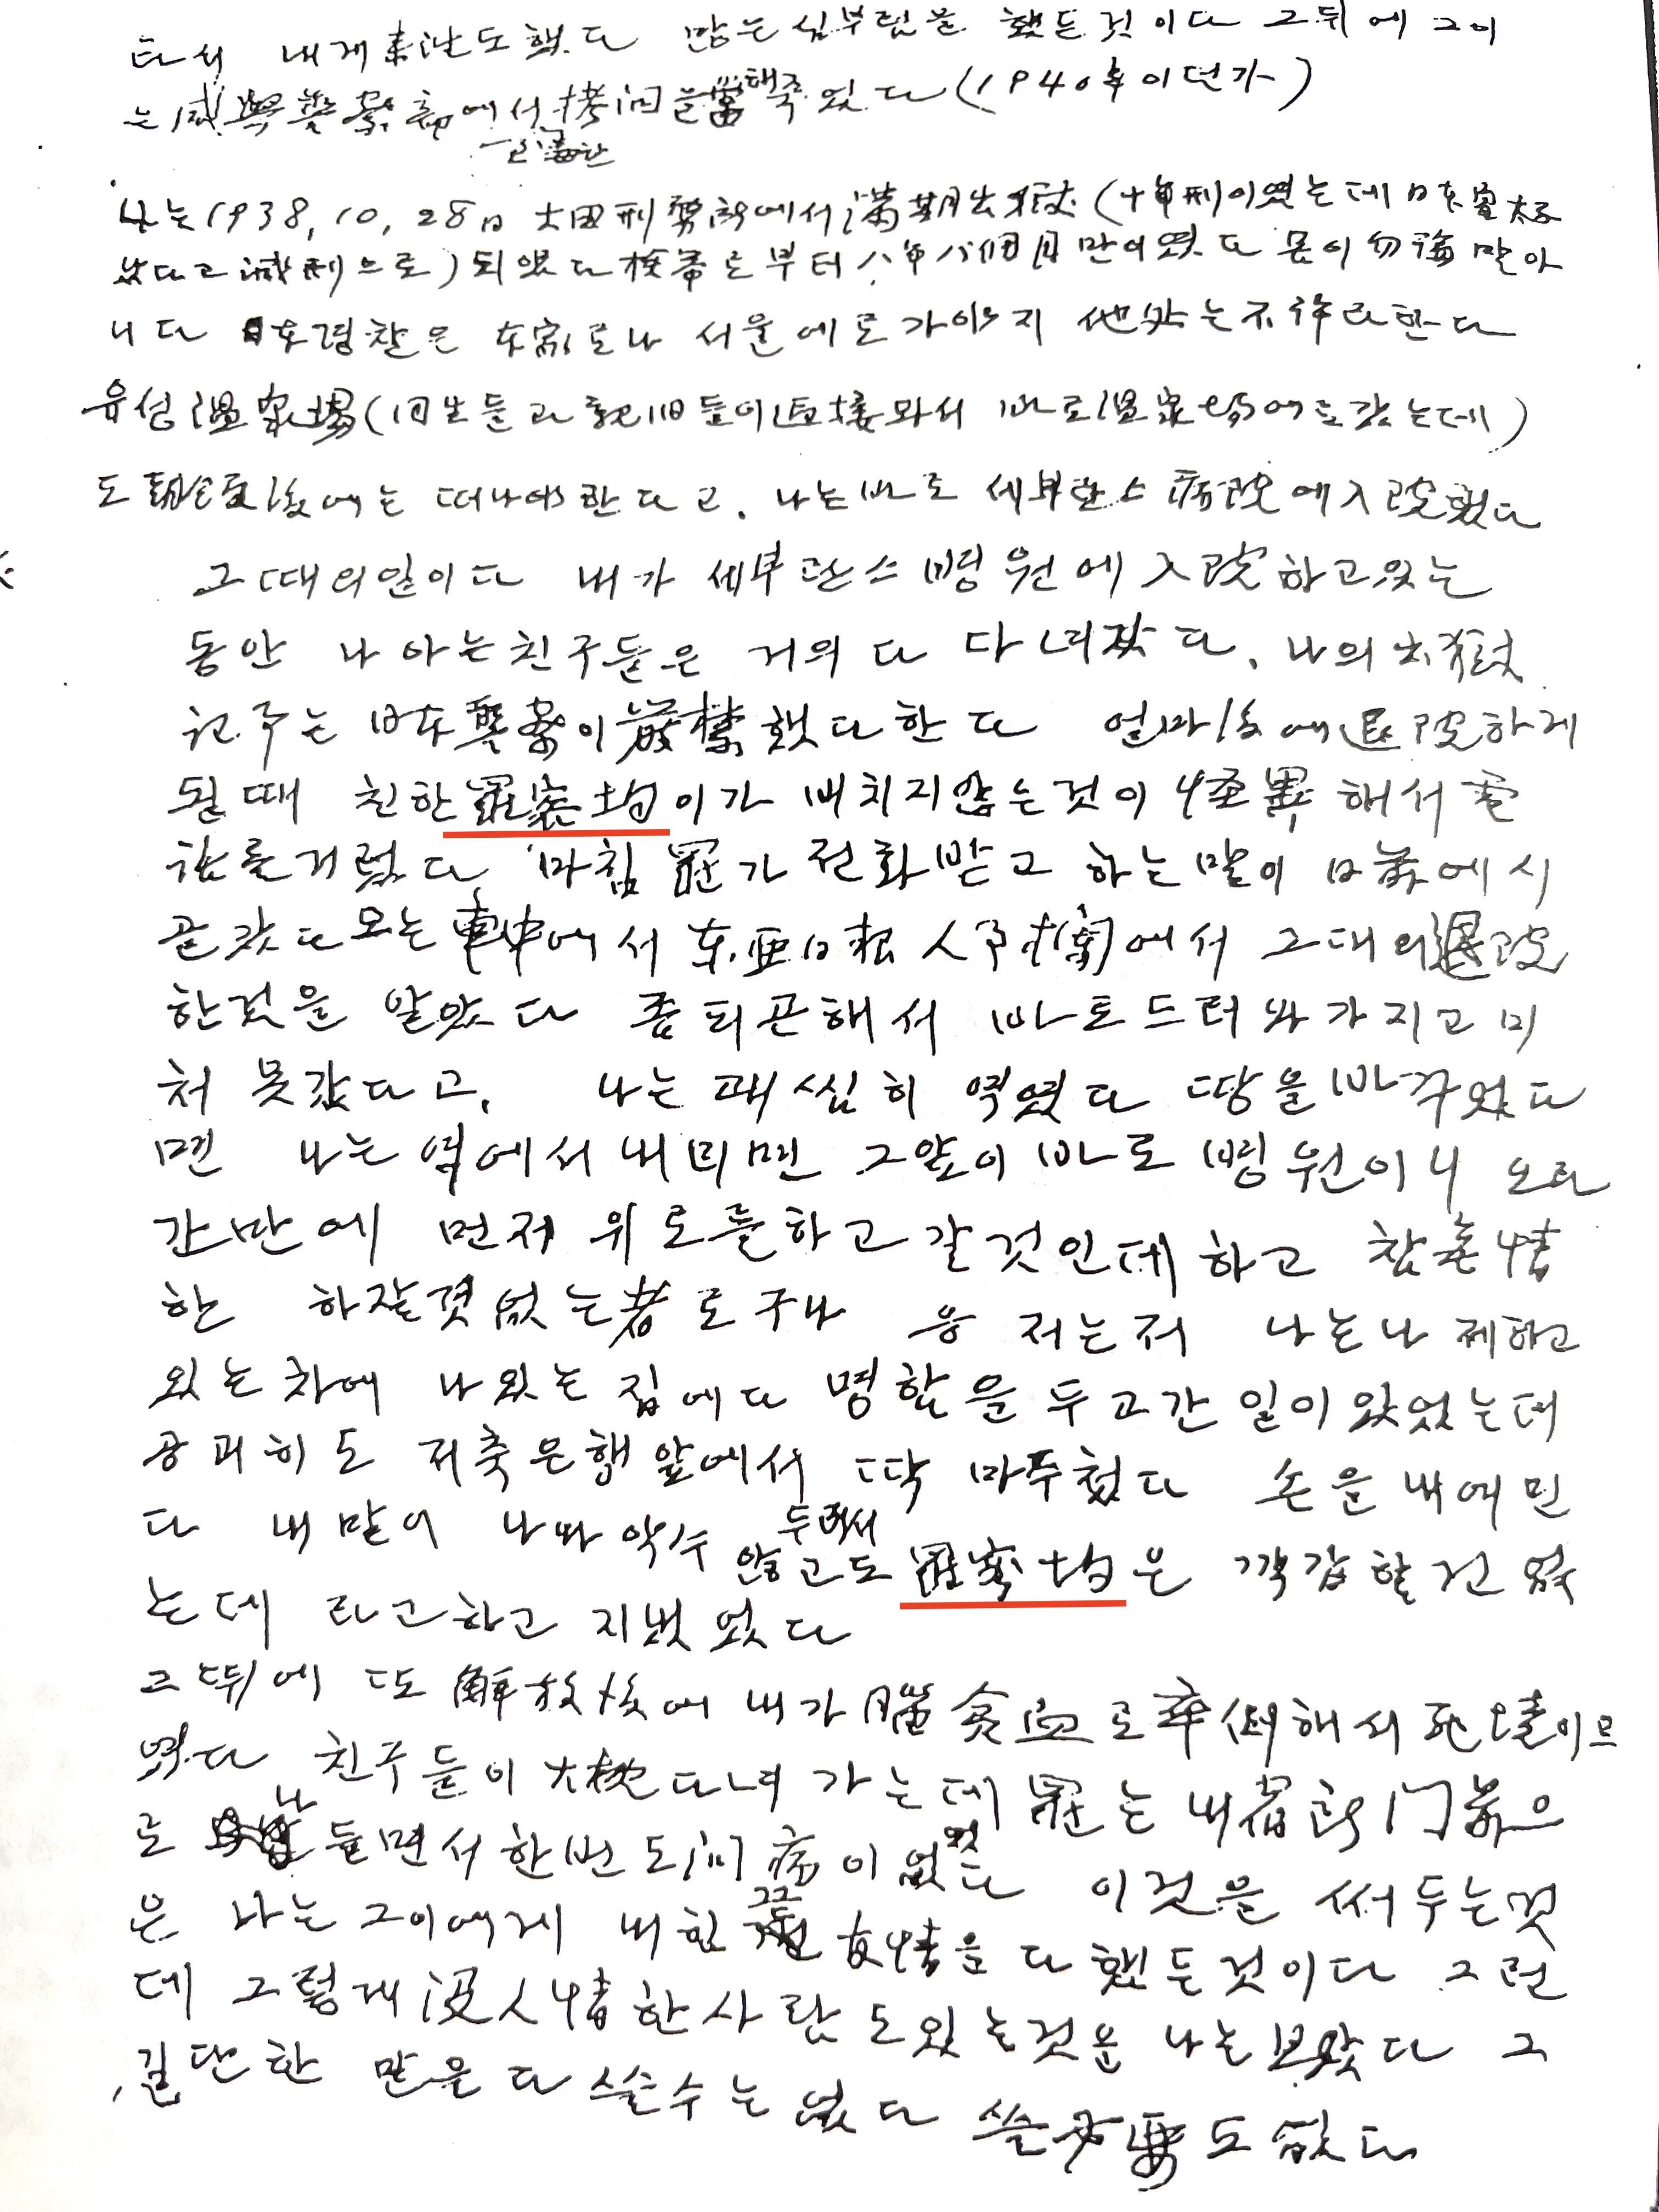 다서 내게 未안도 했다 많은 심부림을 했든것이다 그뒤에 그이
는 咸興警察部에서 拷问을 當해죽었다 (1940年이던가)
나는 1938, 10, 28日 大田刑務所에서 滿期出獄 (十年刑이였는데 日本皇太子
났다고 減刑으로) 되였다 부터 八年八個月만이였다 몸이 勿論 말아
니다 日本경찰은 本家로나 서울에로 가야지 他処는 不許라한다
유성 温泉場 (同生들과 親旧들이 直接와서 바로 温泉场에를 갔는데)
도 後에는 떠나야한다고. 나는 바로 세부란스 病院에 入院했다
그때의일이다 내가 세부란스 병원에 入院하고있는
동안 나 아는 친구들은 거의 다 다녀갔다. 나의 出獄
는 日本警察이 嚴禁했다한다 얼마後에 退院하게
될때 친한 羅 均이가 비치지않는것이 怪異해서 電
話를거렀다 마침 羅가 전화받고 하는말이 日前에 시
골갔다오는 車中에서 东亜日報 人事欄에서 그대의 退院
한것을 알았다 좀 피곤해서 바로 드러와가지고 미
처 못갔다고. 나는 괘씸히 역였다 땅을 바꾸었다
면 나는 역에서 내리면 그앞이 바로 병원이니 오래
간만에 먼저 위로를하고 갈것인데 하고 참 無情
한 하잘것없는者로구나 응 저는저 나는나 제하고
있는차에 나있는 집에다 명함을 두고간 일이 있었는데
공교히도 저축은행앞에서 딱 마주첬다 손을 내에민
다 내말이 나따 악수 않고도 두려서 羅 均은 깍갑할건 없
는데 라고하고 지냈었다
그뒤에 또 解放後에 내가 腦貧血로 卒倒해서 死境이므
였다 친구들이 大槪 다녀 가는데 羅는 내 宿所 门前으
로 나들면서 한번도 问病이 없었다 이것을 써두는것
은 나는 그이에게 대한 友情을 다했든것이다 그런
데 그렇게 没人情한 사람도있는것을 나는보았다 그
길단한 말을 다 쓸수는 없다 쓸 必要도 없다